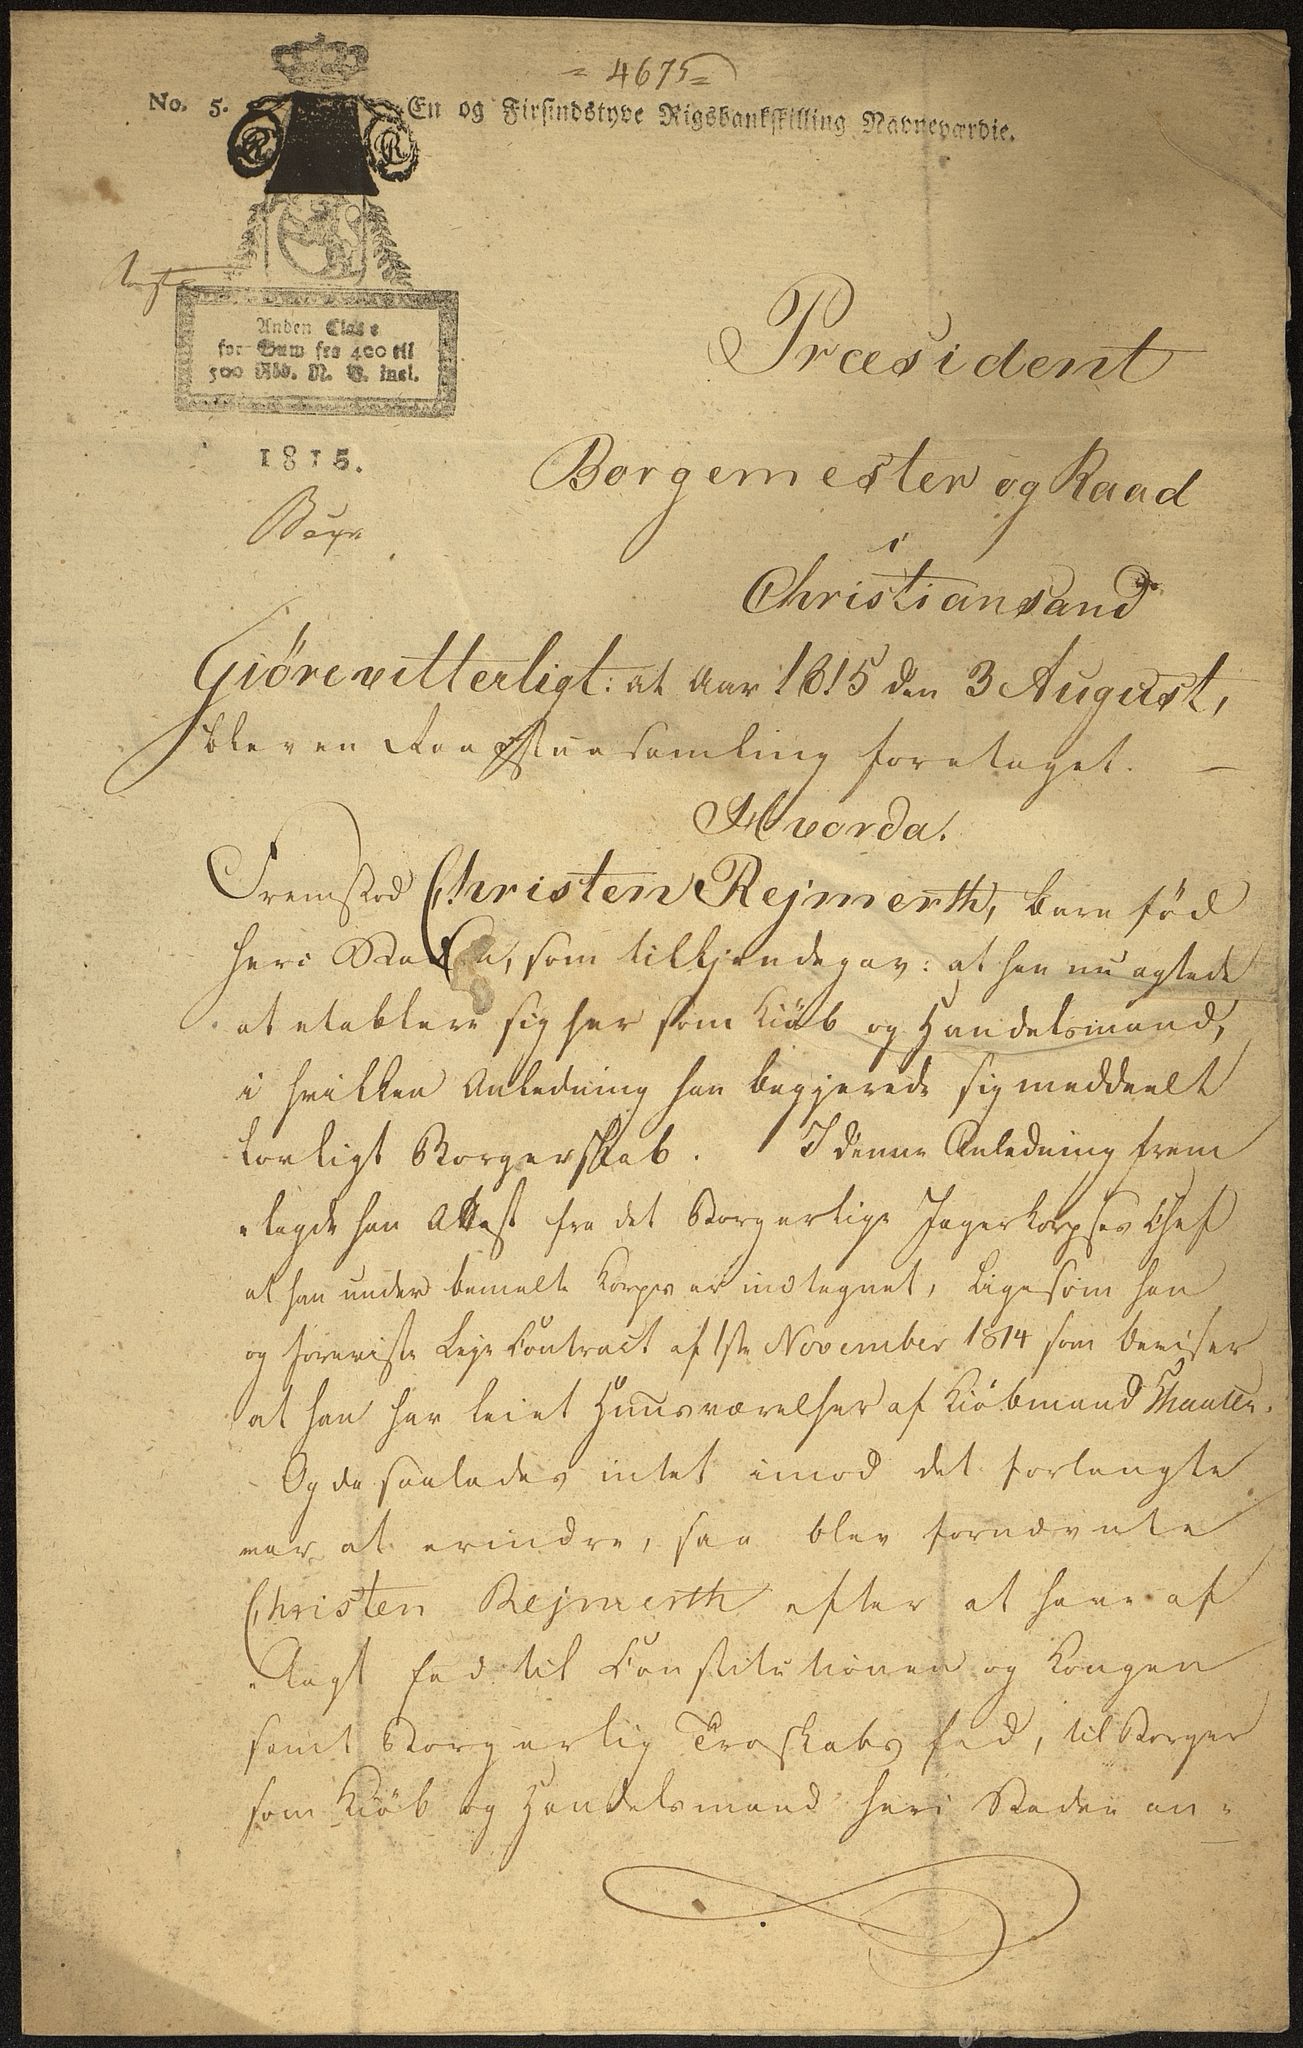 = 4675 =
No. 5. En og Firsindstyve Rigsbankskilling Navneværdie.
R R
Anden Classe
for Sum fra 400 til
500 Rbd. N. V. incl.
1815.
Præsident
Borgemester og Raad
i
Christiansand
Giöre vitterligt: at Aar 1815 den 3 August,
blev en Raadstuesamling foretaget. —
Hvorda.
Fremstod Christen Rejmerth, barnfød
her i Staden, som tilkjendegav: at han nu agtede
at etablere sig her som Kiöb og Handelsmand,
i hvilken Anledning han begjerede sig meddeelt
lovligt Borgerskab. I denne Anledning frem
„lagde han Attest fra det Borgerlige Jægerkorpses Chef
at han under bemelte Korps er indtegnet, ligesom han
og foreviste Leje Contract af 1ste November 1814 som beviser
at han har leiet Huusværelser af Kiöbmand
Og da saaledes intet imod det forlangte
var at erindre, saa blev fornævnte
Christen Rejmerth efter at have af
„lagt Eed til Constitutionen og Kongen
samt Borgerlig Troskabs Eed, til Borger
som Kiöb og Handelsmand her i Staden an-